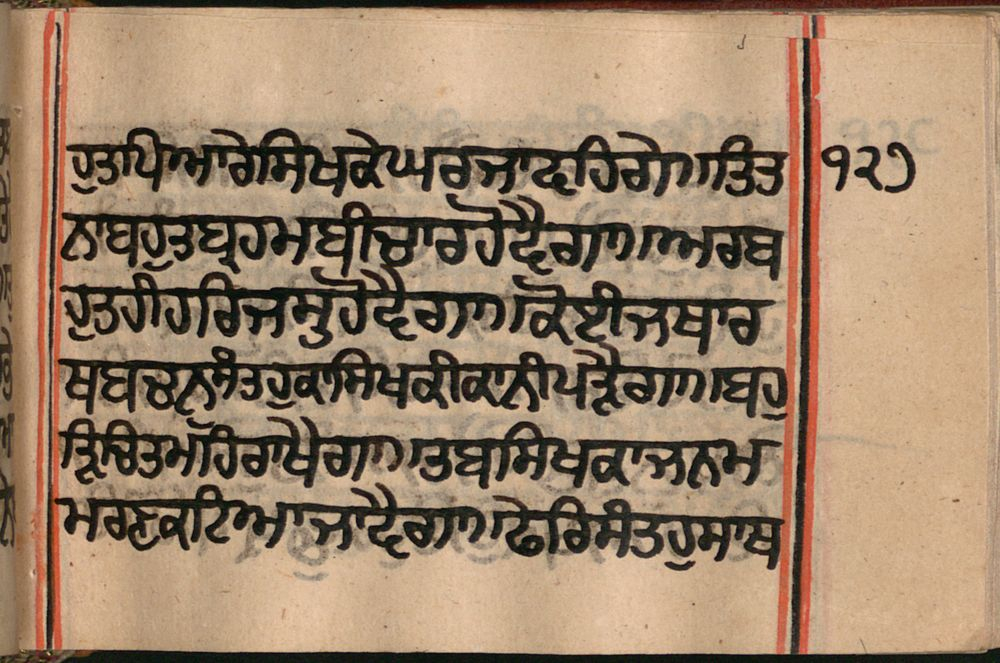 ਹੁਤਪਿਆਰੇਸਿਖਕੇਘਰਜਾਵਹਿਗੇ॥ਤਿਤ ੧੨੭
ਨਾਬਹੁਤਬ੍ਰਹਮਬੀਚਾਰਹੋਵੈਗਾ॥ਅਰਬ
ਹੁਤਹੀਹਰਿਜਸੁਹੋਵੈਗਾ॥ਕੋਈਜਥਾਰ
ਥਬਚਨਸੰਤਹੁਕਾਸਿਖਕੀਕਾਨੀਪੜੈਗਾ॥ਬਹੁ
ੜਿਚਿਤਮਹਿਰਾਖੈਗਾ॥ਤਬਸਿਖਕਾਜਨਮ
ਮਰਣਕਟਿਆਜਾਵੈਗਾ॥ਫੇਰਿਸੰਤਹੁਸਾਥ